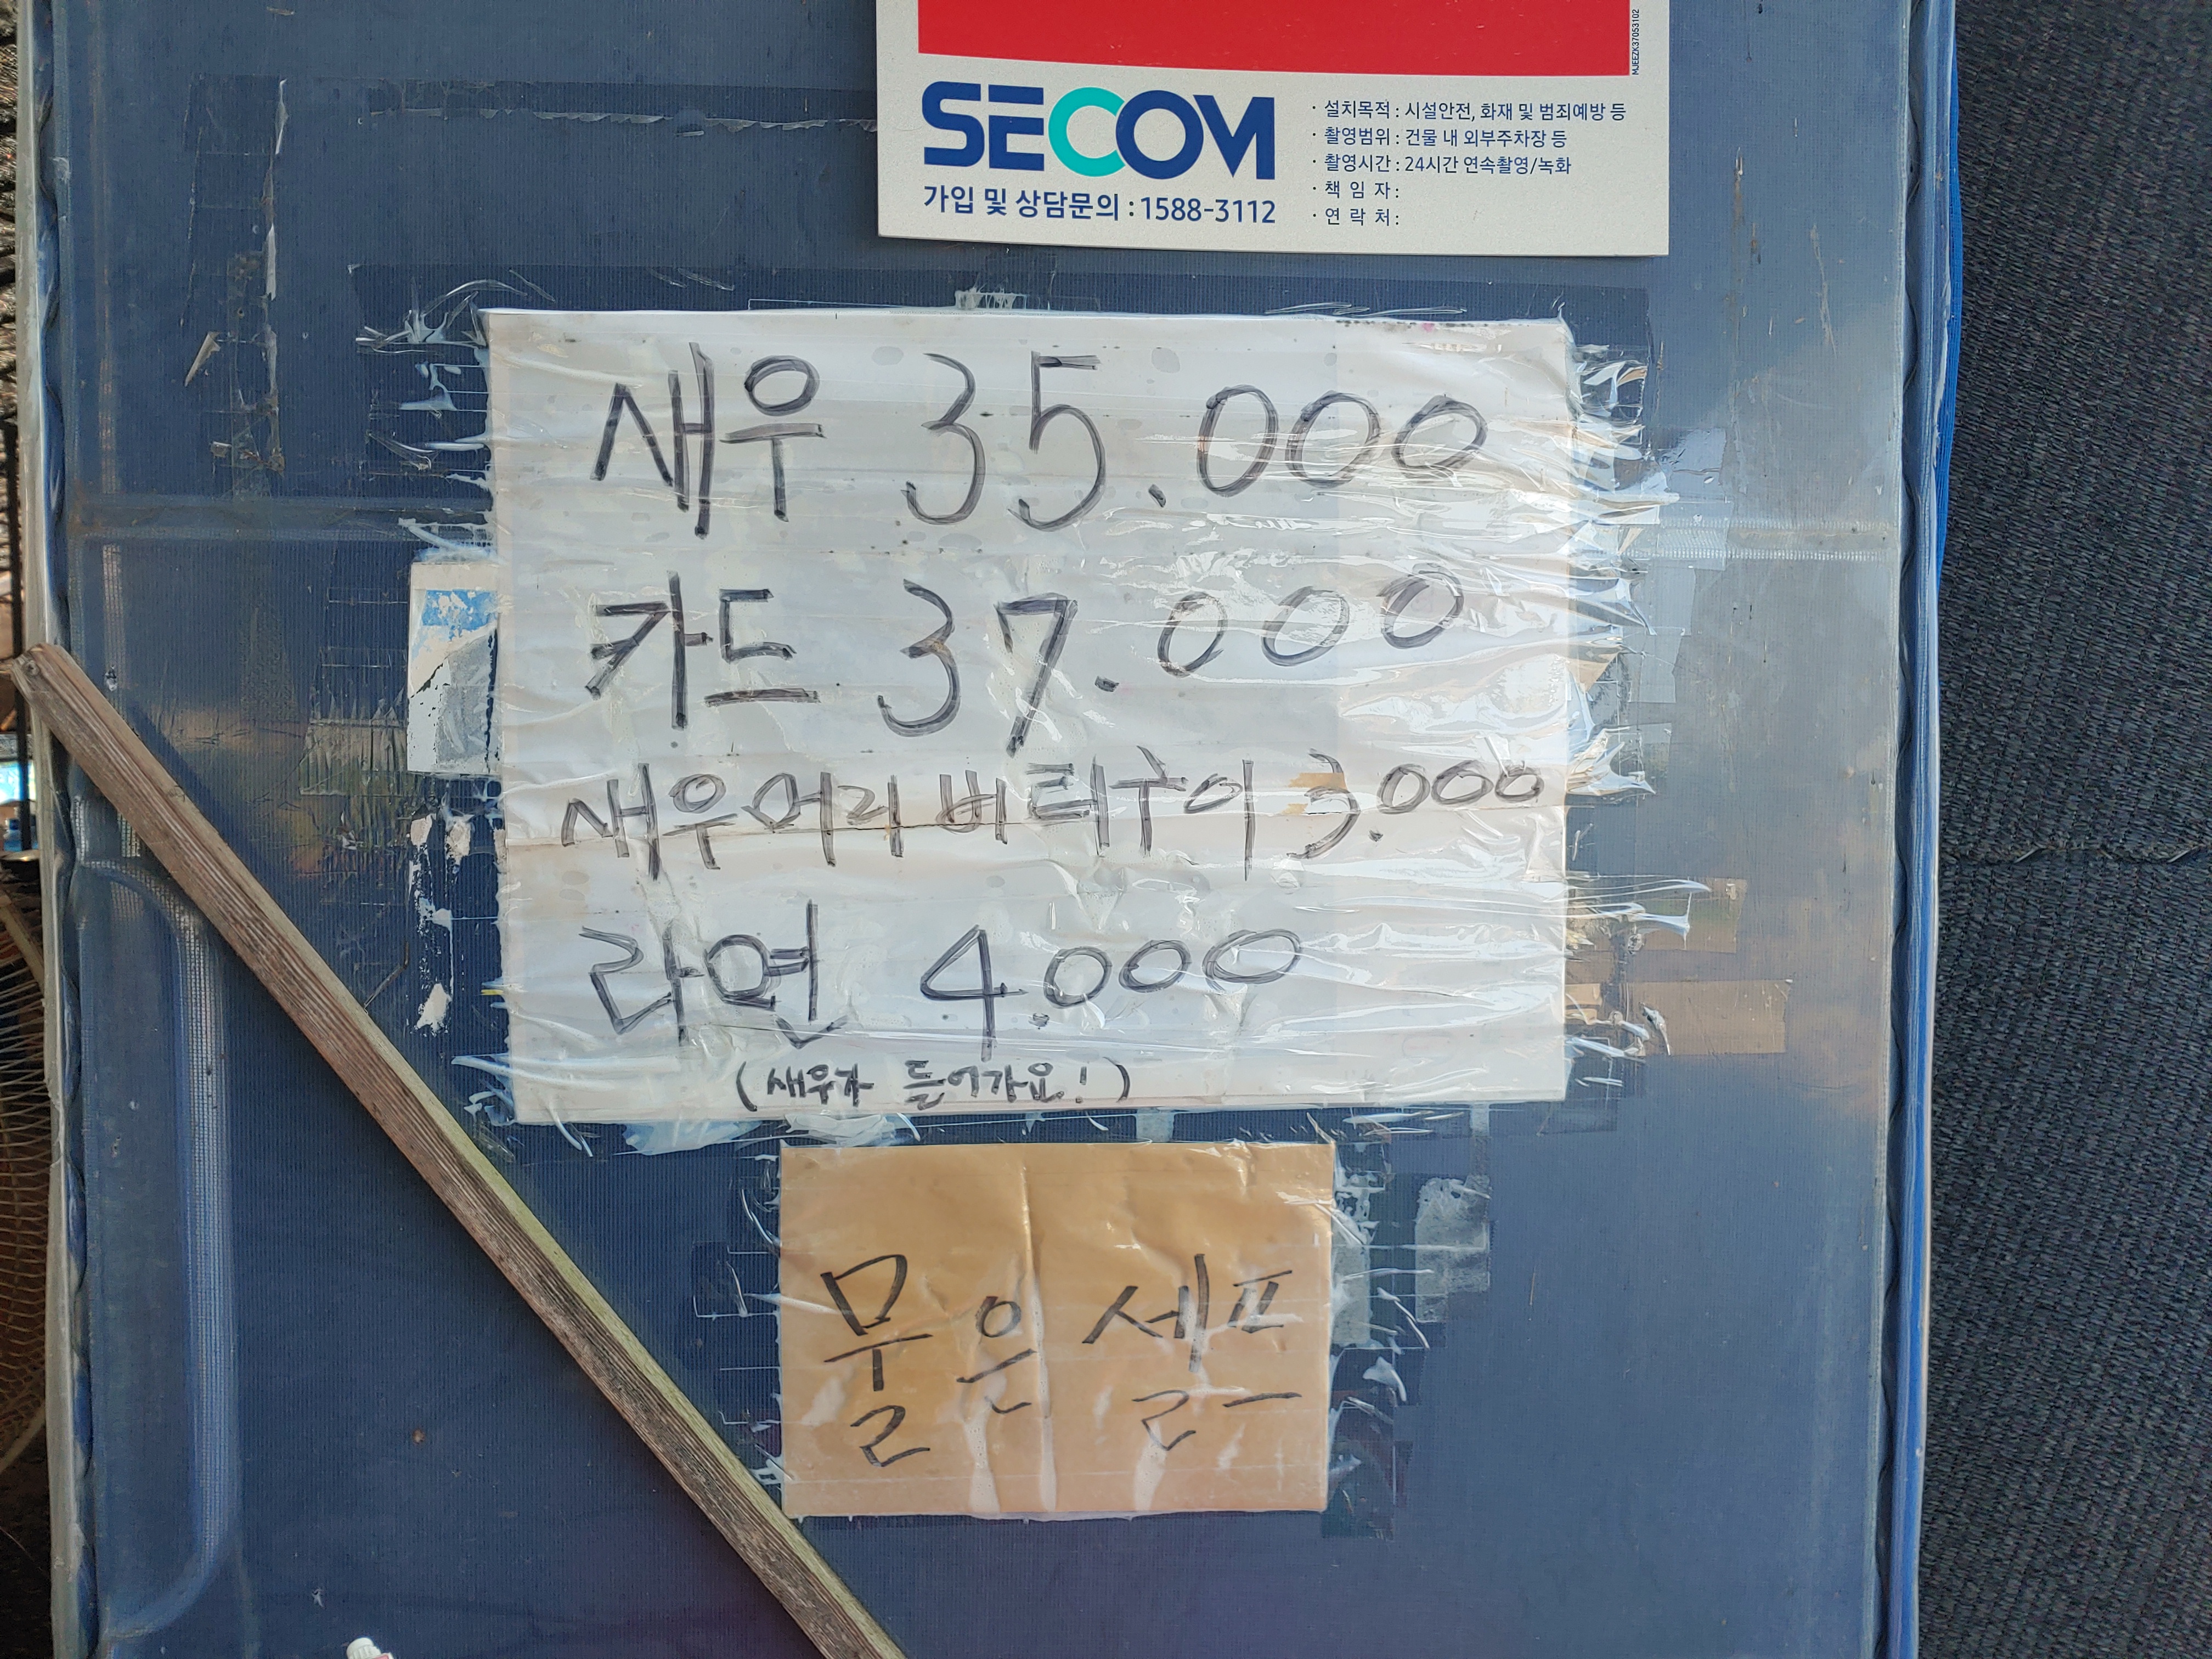 SECOM
가입 및 상담문의 : 1588-3112
· 설치목적 : 시설안전, 화재 및 범죄예방 등
· 촬영범위 : 건물 내 외부주차장 등
· 촬영시간 : 24시간 연속촬영/녹화
· 책 임 자 :
· 연 락 처 :
MJEEZK37053102
새우 35.000
카드 37.000
새우머리버터구이 3.000
라면 4.000
(새우가 들어가요!)
물은 셀프